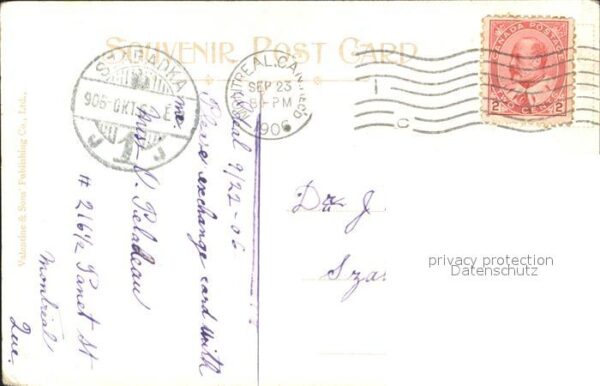 SOUVENIR POST CARD
MONTREAL, CANADA
SEP 23
PM
1906
SZABADKA
906 OKT
CANADA POSTAGE
2 TWO CENTS 2
Mtl 9/22-06
Please exchange card with
me.
Miss O. Peladeau
# 216½ Panet St
Montreal
Que.
Valentine & Sons' Publishing Co., Ltd.,
Dr. J
Sza
privacy protection
Datenschutz